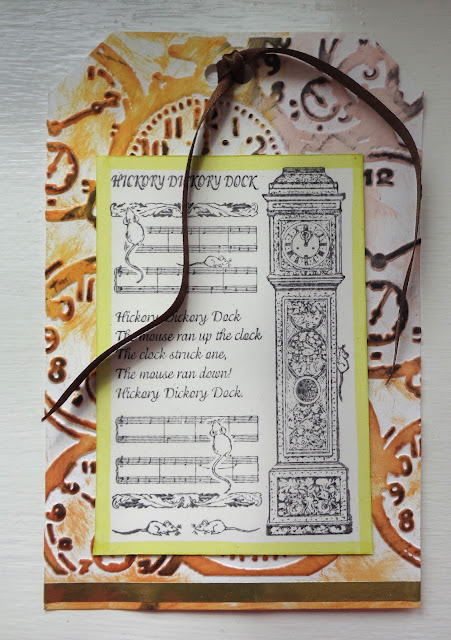 HICKORY DICKORY DOCK
Hickory Dickory Dock
The mouse ran up the clock
The clock struck one,
The mouse ran down!
Hickory Dickory Dock.
9
12
8
9
8